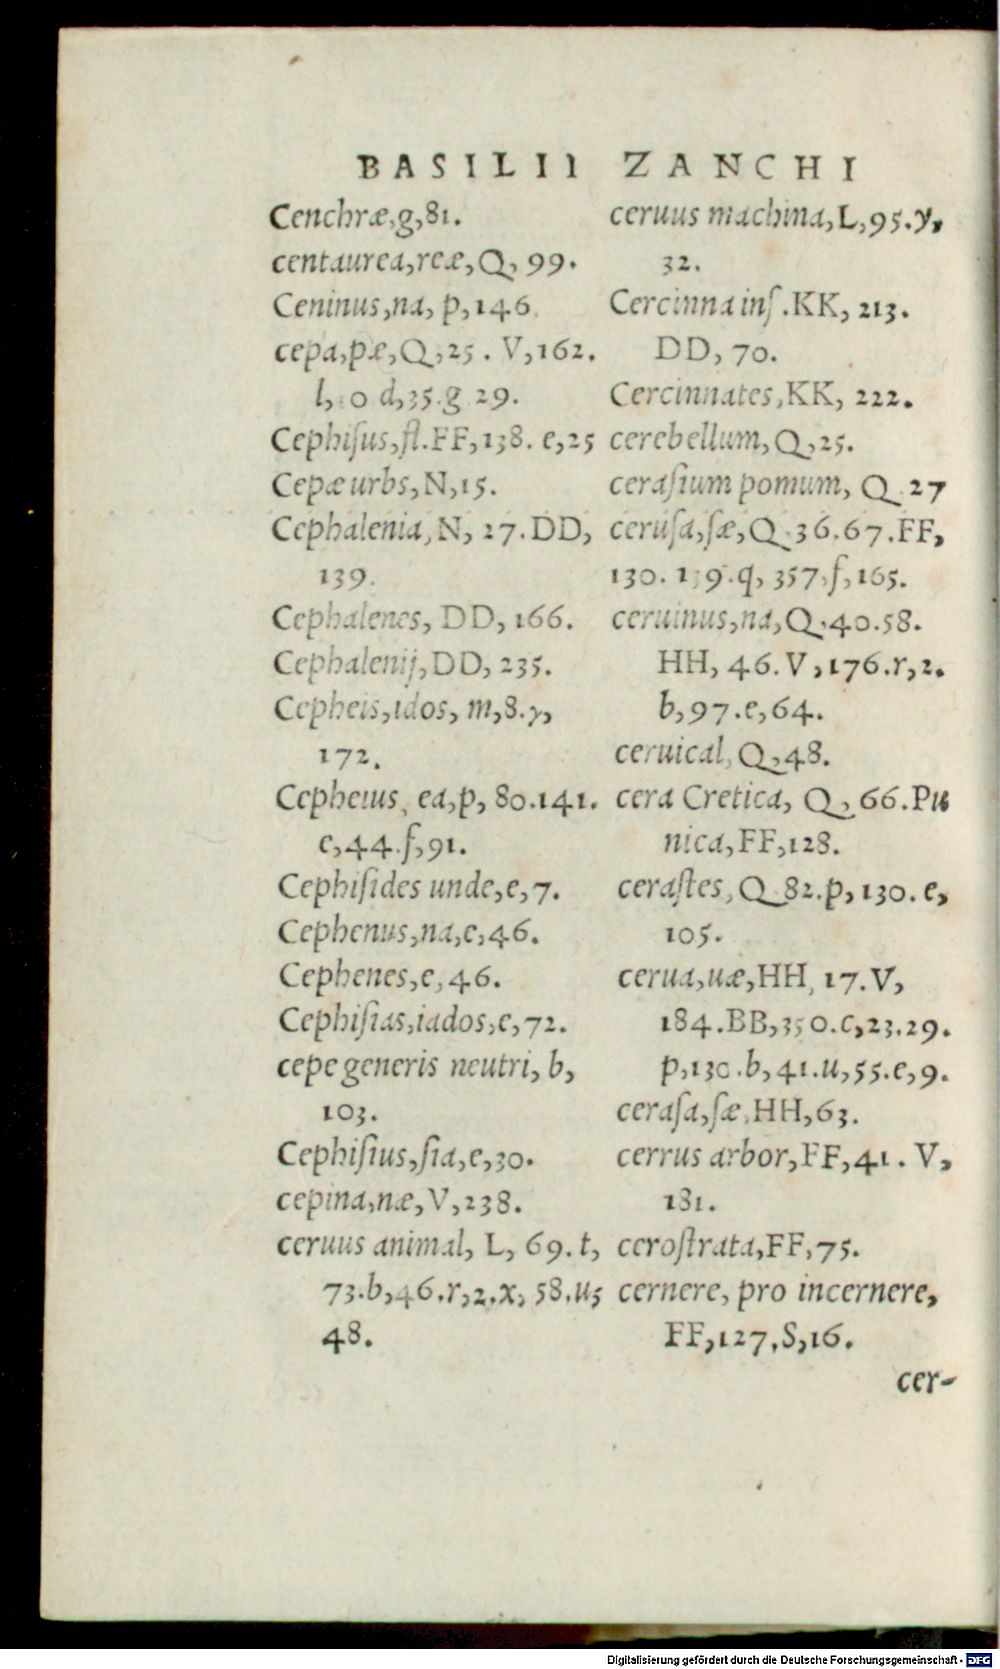 BASILII ZANCHI
Cenchræ,g,81.
centaurea,reæ,Q,99.
Ceninus,na, p,146.
cepa,pæ,Q,25. V,162.
l, d,35.g 29.
Cephiſus,fl.FF,138. e,25
Cepæ urbs,N,15.
Cephalenia,N, 27.DD,
139.
Cephalenes, DD, 166.
Cephalenij,DD, 235.
Cepheis,idos, m,8.y,
172.
Cepheius, ea,p, 80.141.
c,44.f,91.
Cephiſides unde,e,7.
Cephenus,na,e,46.
Cephenes,e,46.
Cephiſias,iados,e,72.
cepe generis neutri, b,
103.
Cephiſius,ſia,e,30.
cepina,næ,V,238.
ceruus animal, L, 69. t,
73.b,46.r,2.x, 58.u,
48.
ceruus machina,L,95.y,
32.
Cercinna inſ.KK, 213.
DD, 70.
Cercinnates,KK, 222.
cerebellum,Q,25.
ceraſium pomum, Q 27
ceruſa,ſæ,Q.36.67.FF,
130. q, 357,f,165.
ceruinus,na,Q.40.58.
HH, 46.V,176.r,2.
b,97.e,64.
ceruical, Q,48.
cera Cretica, Q, 66.Pu
nica,FF,128.
ceraſtes, Q 82.p,130. e,
105.
cerua,uæ,HH, 17.V,
184.BB,350.c,23.29.
p,130.b,41.u,55.e,9.
ceraſa,ſæ,HH,63.
cerrus arbor,FF,41. V,
181.
ceroſtrata,FF,75.
cernere, pro incernere,
FF,127,S,16.
cer-
Digitalisierung gefördert durch die Deutsche Forschungsgemeinschaft - DFG